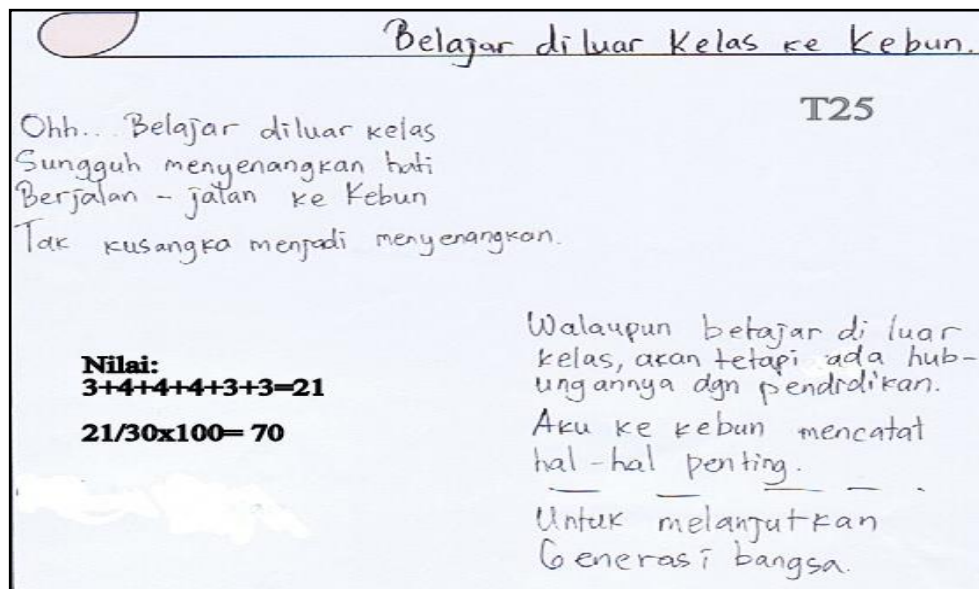 Belajar di luar Kelas ke Kebun.
T25
Ohh... Belajar diluar kelas
Sungguh menyenangkan hati
Berjalan - jalan ke Kebun
Tak kusangka menjadi menyenangkan.
Nilai:
3+4+4+4+3+3=21
21/30x100= 70
Walaupun belajar di luar
kelas, akan tetapi ada hub-
ungannya dgn pendidikan.
Aku ke kebun mencatat
hal-hal penting.
Untuk melanjutkan
Generasi bangsa.